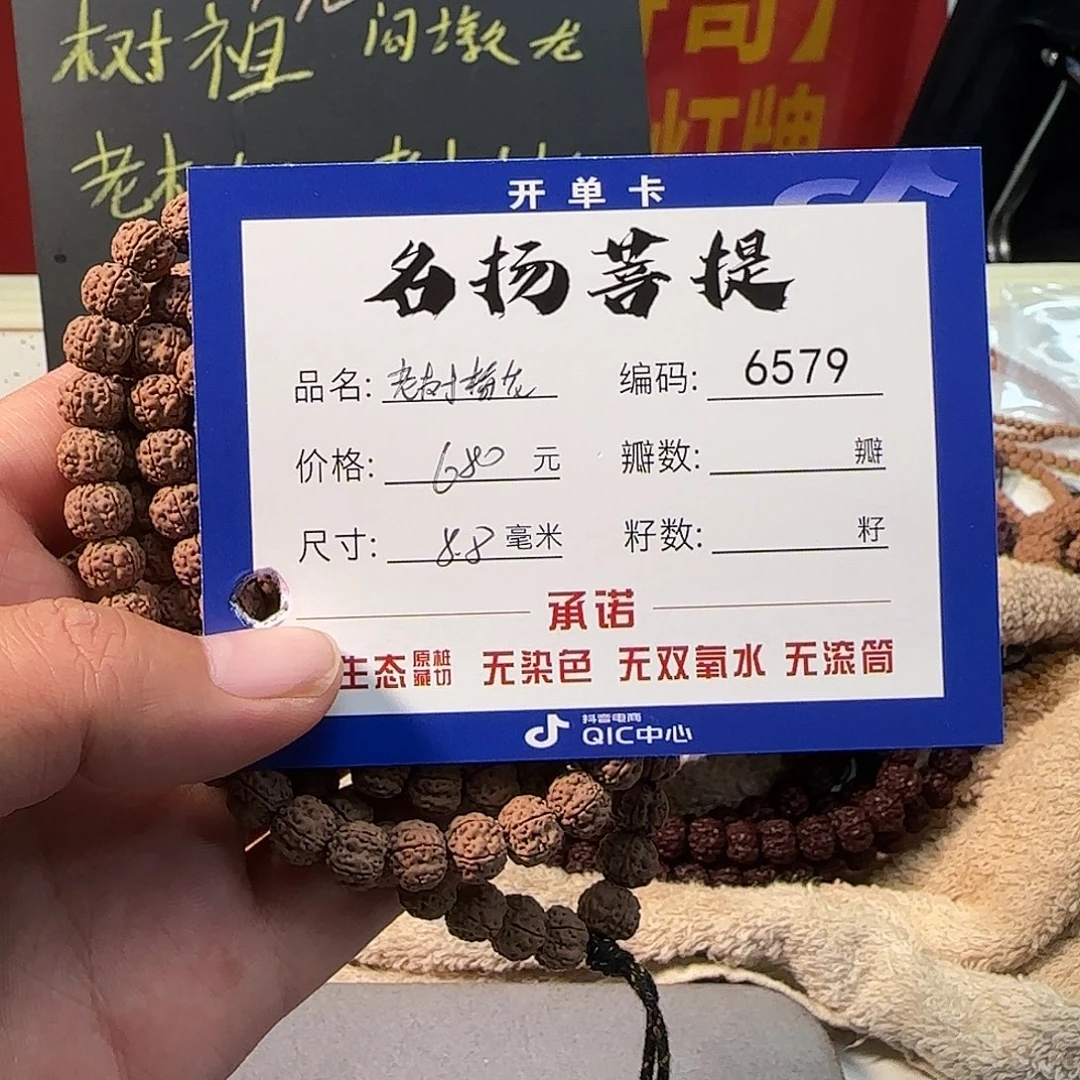 树祖 闷墩龙
老
灯牌
开单卡
名扬菩提
品名: 老树杨龙 编码: 6579
价格: 680 元 瓣数: 瓣
尺寸: 8.8 毫米 籽数: 籽
承诺
生态 原桩藏切 无染色 无双氧水 无滚筒
抖音电商
QIC中心